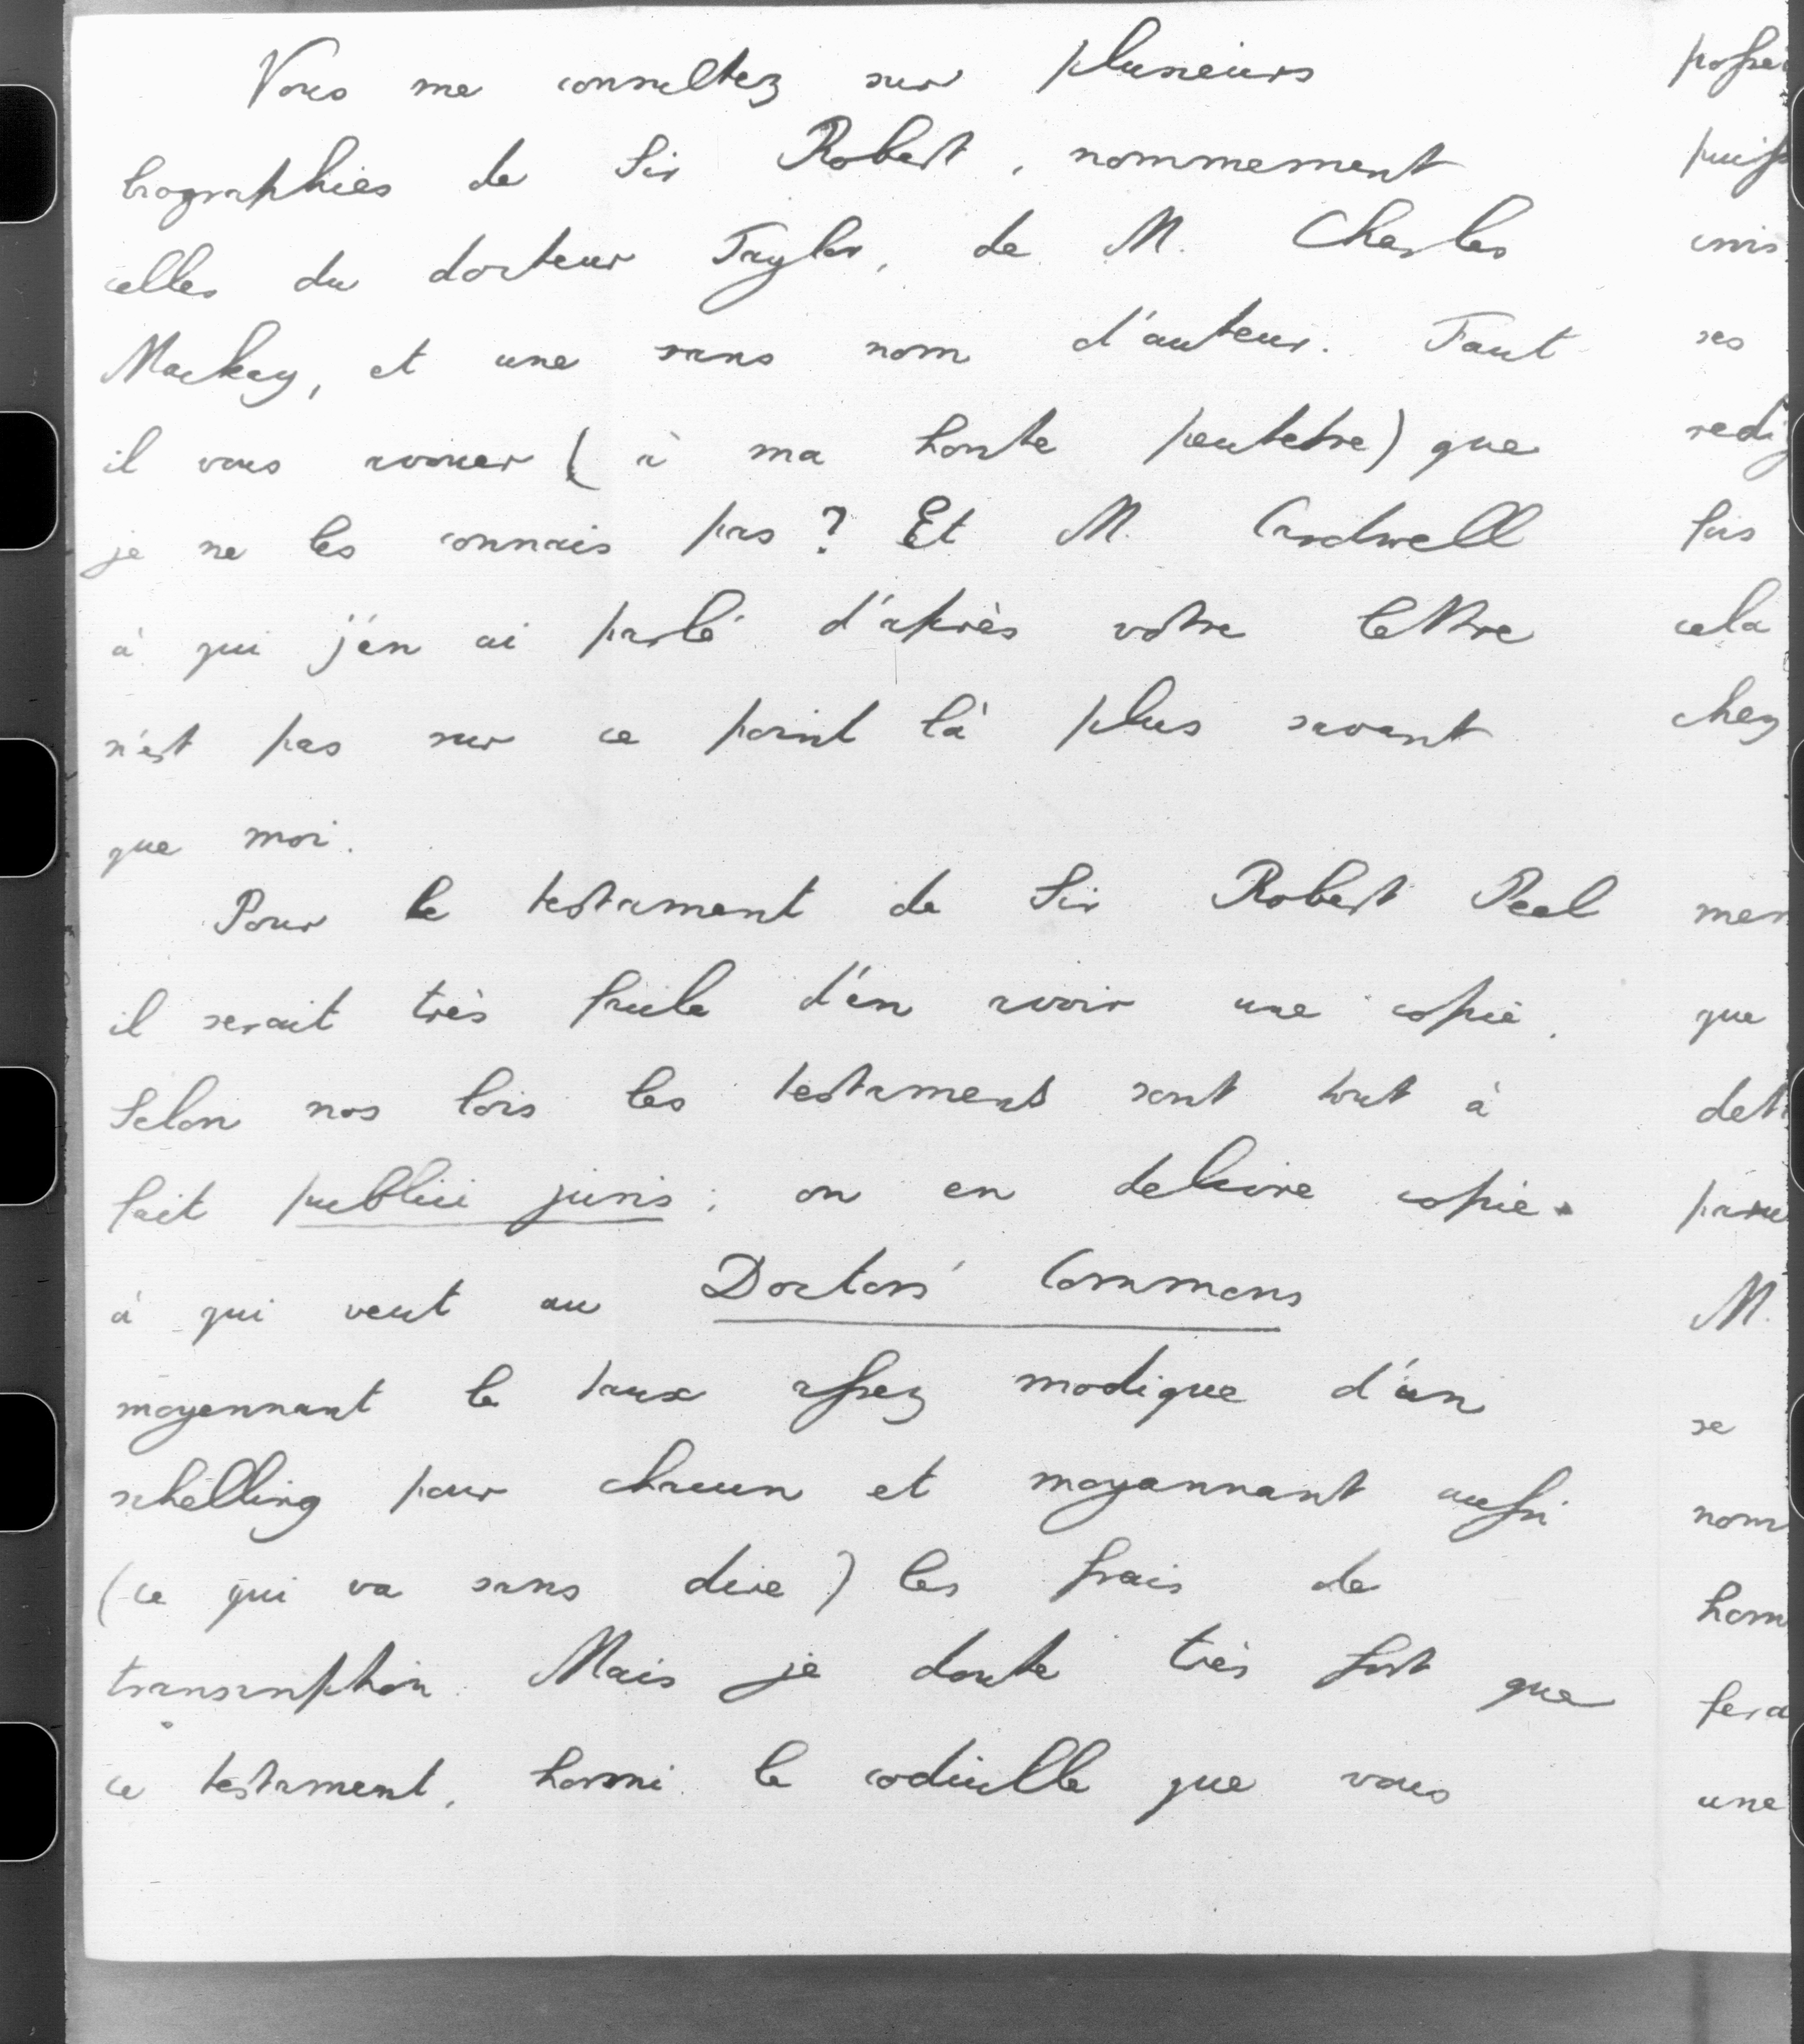 Vous me consultez sur plusieurs
biographies de Sir Robert, nommement
celles du docteur Taylor, de M. Charles
Mackay, et une sans nom d'auteur. Faut
il vous avouer (à ma honte peutetre) que
je ne les connais pas? Et M. Cardwell
à qui j'en ai parlé d'après votre lettre
n'est pas sur ce point là plus savant
que moi.
Pour le testament de Sir Robert Peel
il serait très facile d'en avoir une copie.
Selon nos lois les testaments sont tout à
fait publici juris; on en delivre copie
à qui veut au Doctors' Commons
moyennant le taux assez modique d'un
schelling pour chacun et moyennant aussi
(ce qui va sans dire) les frais de
transcription. Mais je doute très fort que
ce testament, hormi le codicille que vous
ses
fois
cela
chez
que
M.
se
une